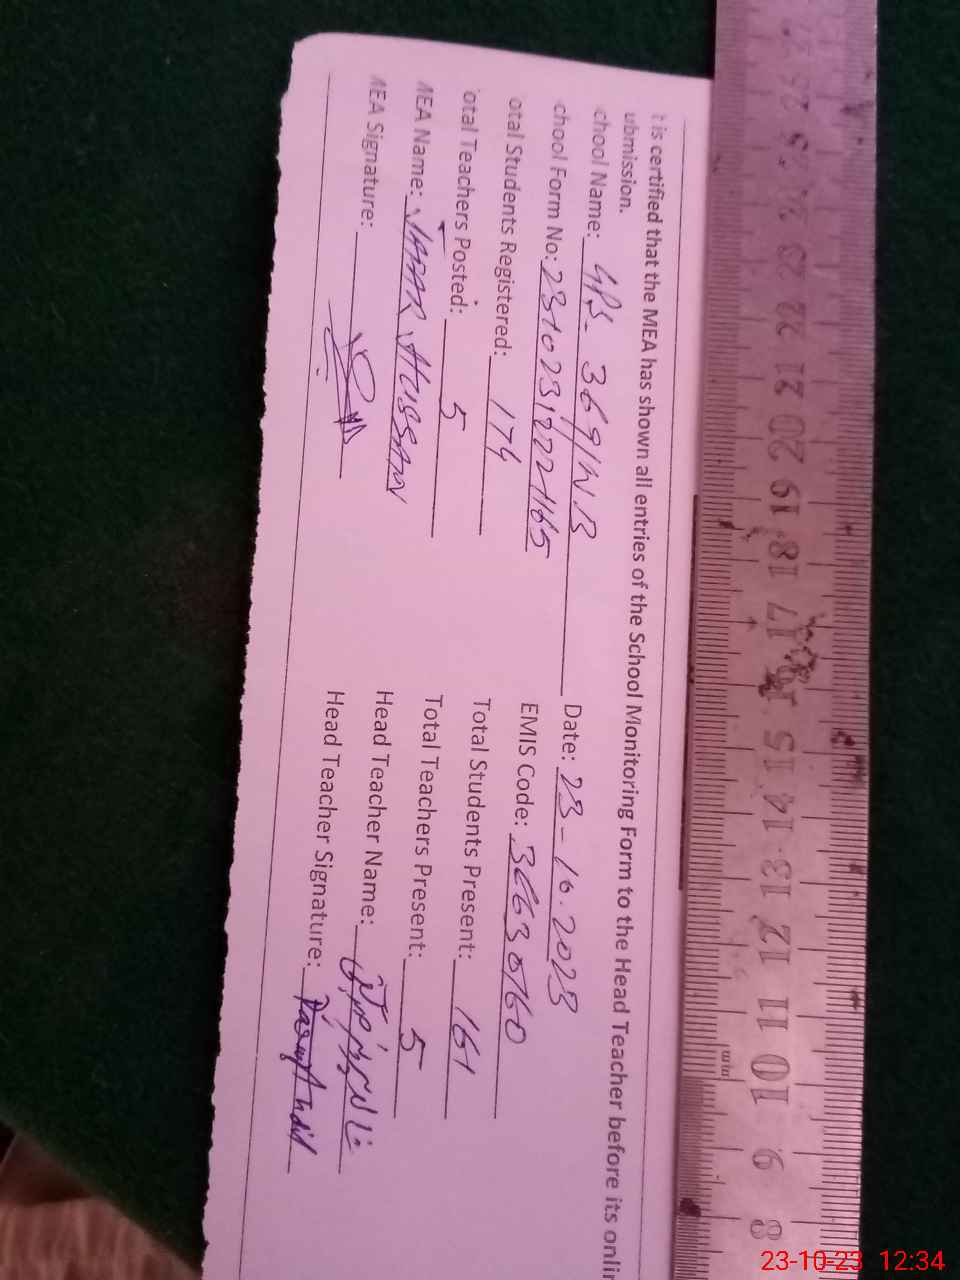 t is certified that the MEA has shown all entries of the School Monitoring Form to the Head Teacher before its onlin
ubmission.
chool Name: GPS 369/WB Date: 23-10.2023
chool Form No: EMIS Code: 36630760
otal Students Registered: 174 Total Students Present: 161
otal Teachers Posted: 5 Total Teachers Present: 5
MEA Name: JAFAR HUSSAIN Head Teacher Name:
MEA Signature: Head Teacher Signature:
26 25 24 23 22 21 20 19 18 17 16 15 14 13 12 11 10 9 8
mm
23-10-23 12:34